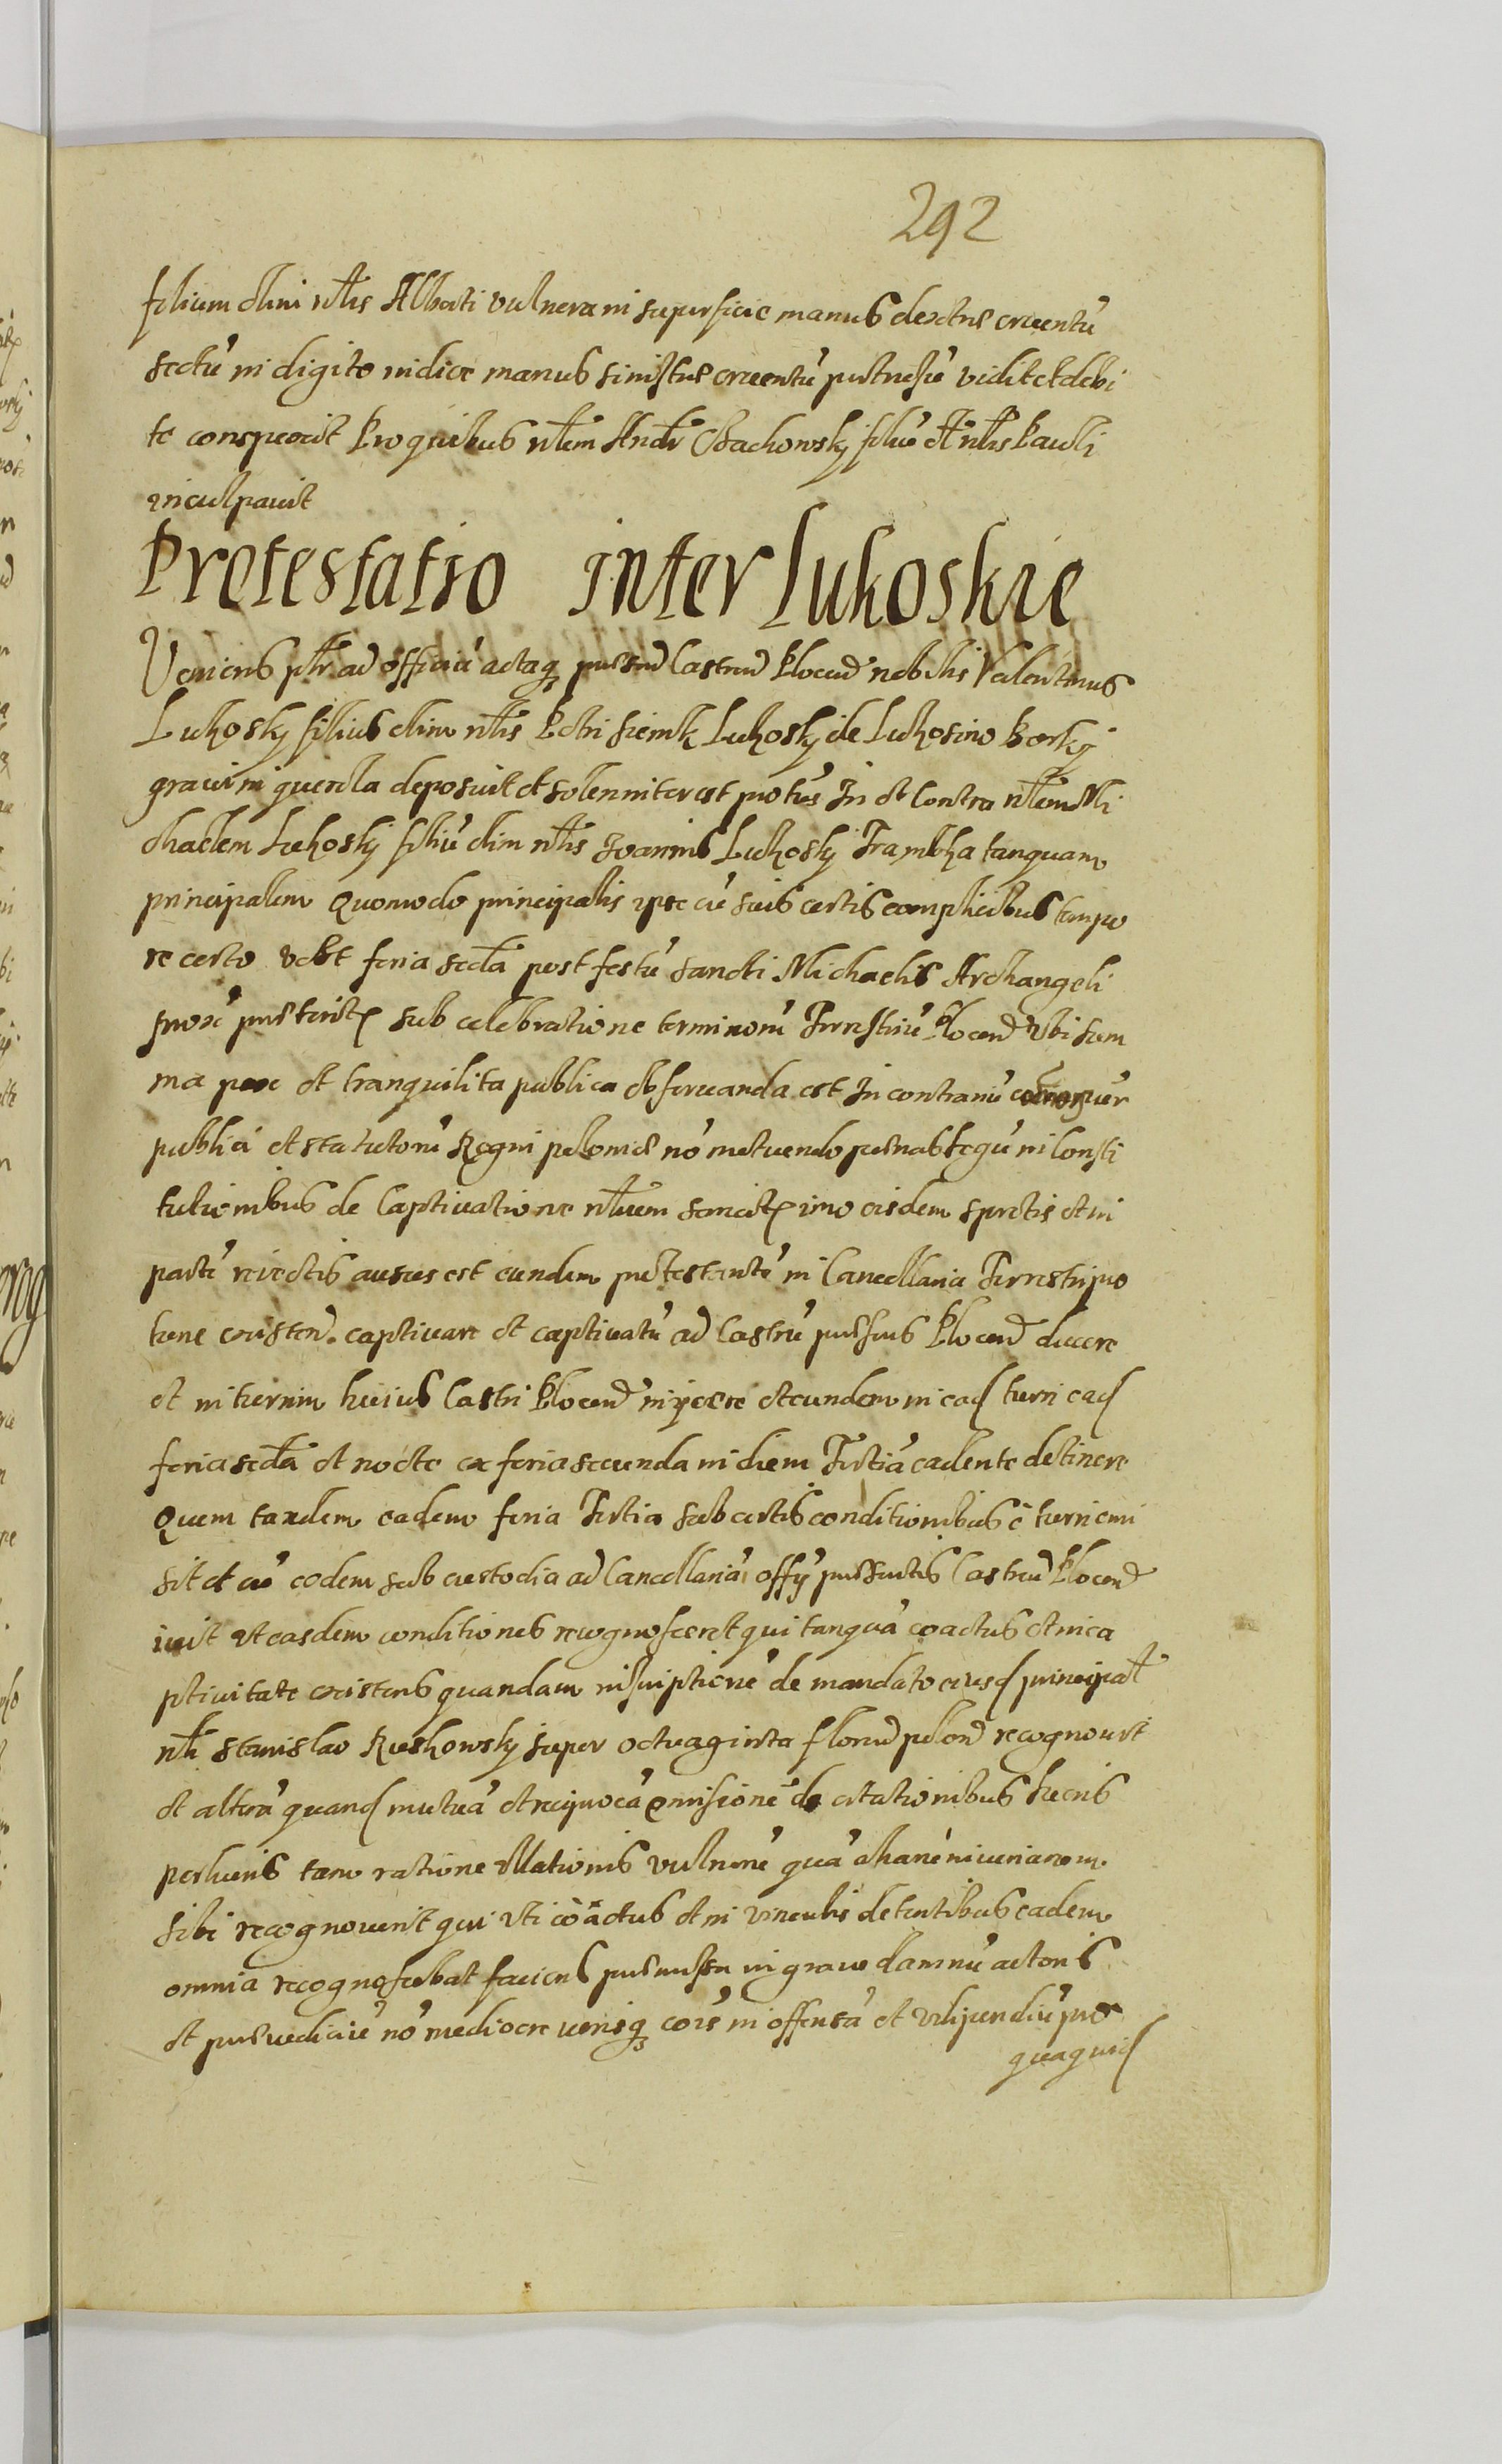 292
filium olim nłis Alberti vulnera in superficie manus dextræ cruentū
sectū in digito indice manus sinistræ cruentū vidit et debi
te conspexit Pro quibus nłem Andr filiū nłis Pauli
inculpauit
Protestatio inter Lukoskie
Veniens ptr ad officiū actaq præsen Castren Plocen nobilis Valentinus
Lukosky filius olim nłis Petri Siemk Lukosky de Lukosino Borky
gravi in querela deposuit et solenniter est protus In et Contra nłem Mi
chaelem Lukosky filiū olim nłis Joannis Lukosky Trambka tanquam
principalem Quomodo principalis ipse cū suis certis complicibus tempo
re certo vdlt feria scda post festū Sancti Michaelis Archangeli
prox præterit sub celebratione terminorū Terrestriū Plocen vbi sum
ma pax et tranquilita publica obseruanda est In contrariū
publici et statutorū Regni poloniæ nō metuendo pœnas legū in Consti
tutionibus de Captiuatione nłium sancit imo eisdem spretis et in
partē reiectis ausus est eundem protestantē in Cancellaria Terrestri pro
tunc existen captiuare et captiuatū ad Castrū præsens Plocen ducere
et in turrim huius Castri Plocen injicere et eundem in ead turri ead
feria scda et nocte ex feria secunda in diem Tertiā cadente detinere
Quem tandem eadem feria Tertia sub certis conditionibus ē turri emi
sit et cū eodem sub custodia ad Cancellariā offy præsentis Castren Plocen
iuit vt easdem conditiones recognosceret qui tanquā coactus et in ca
ptiuitate existens quandam inscriptionē de mandato eiusd principal
nłi Stanislao Ruskowsky super octuaginta floren polon recognouit
et alterā quand mutuā et reciprocā omisionē de citationibus
tam ratione illationis vulnerū quā
sibi recognouerit qui vti cōactus et in vinculis detentibus eadem
omnia recognoscebat faciens præmissa in graue damnū actoris
et præiudiciū nō mediocre iurisq cois in offensā et vilipendiū pro
quaquid